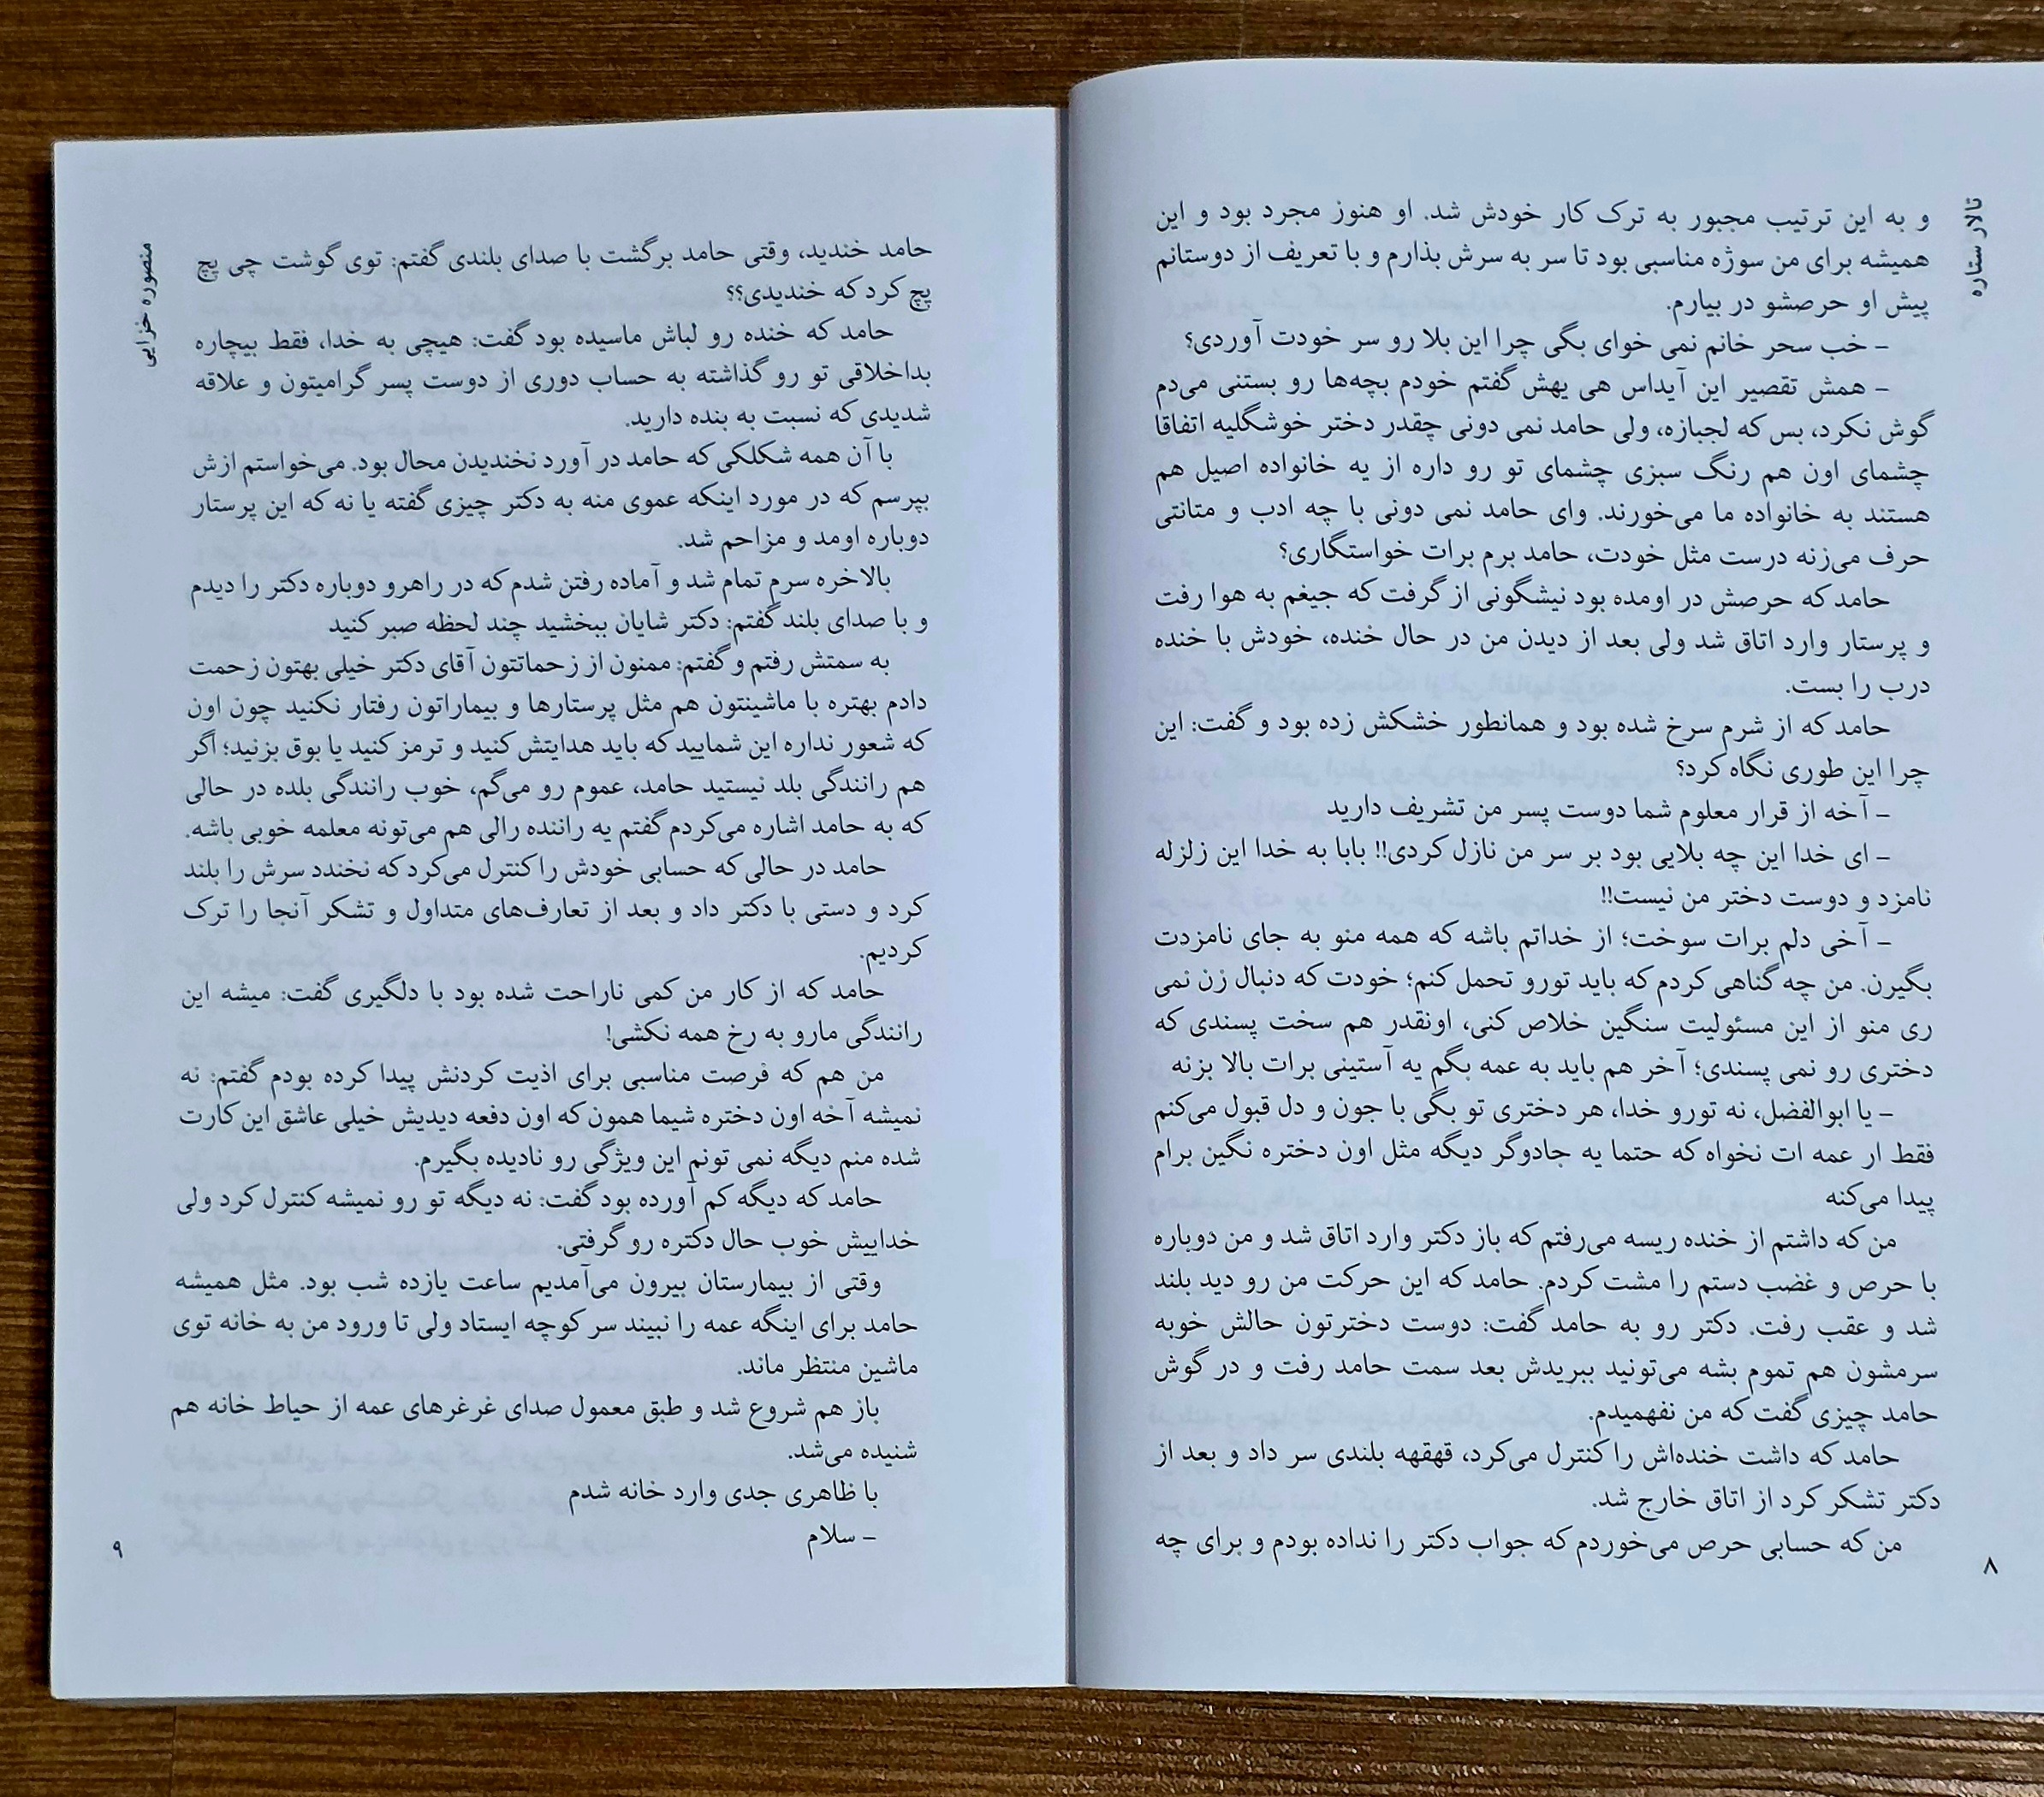 تالار ستاره
و به این ترتیب مجبور به ترک کار خودش شد. او هنوز مجرد بود و این
همیشه برای من سوژه مناسبی بود تا سر به سرش بذارم و با تعریف از دوستانم
پیش او حرصشو در بیارم.
- خب سحر خانم نمی خوای بگی چرا این بلا رو سر خودت آوردی؟
- همش تقصیر این آیداس هی بهش گفتم خودم بچه‌ها رو بستنی می‌دم
گوش نکرد، بس که لجبازه، ولی حامد نمی دونی چقدر دختر خوشگلیه اتفاقا
چشمای اون هم رنگ سبزی چشمای تو رو داره از یه خانواده اصیل هم
هستند به خانواده ما می‌خورند. وای حامد نمی دونی با چه ادب و متانتی
حرف می‌زنه درست مثل خودت، حامد برم برات خواستگاری؟
حامد که حرصش در اومده بود نیشگونی از گرفت که جیغم به هوا رفت
و پرستار وارد اتاق شد ولی بعد از دیدن من در حال خنده، خودش با خنده
درب را بست.
حامد که از شرم سرخ شده بود و همانطور خشکش زده بود و گفت: این
چرا این طوری نگاه کرد؟
- آخه از قرار معلوم شما دوست پسر من تشریف دارید
- ای خدا این چه بلایی بود بر سر من نازل کردی!! بابا به خدا این زلزله
نامزد و دوست دختر من نیست!!
- آخی دلم برات سوخت؛ از خداتم باشه که همه منو به جای نامزدت
بگیرن. من چه گناهی کردم که باید تورو تحمل کنم؛ خودت که دنبال زن نمی
ری منو از این مسئولیت سنگین خلاص کنی، اونقدر هم سخت پسندی که
دختری رو نمی پسندی؛ آخر هم باید به عمه بگم یه آستینی برات بالا بزنه
- یا ابوالفضل، نه تورو خدا، هر دختری تو بگی با جون و دل قبول می‌کنم
فقط ار عمه ات نخواه که حتما یه جادوگر دیگه مثل اون دختره نگین برام
پیدا می‌کنه
من که داشتم از خنده ریسه می‌رفتم که باز دکتر وارد اتاق شد و من دوباره
با حرص و غضب دستم را مشت کردم. حامد که این حرکت من رو دید بلند
شد و عقب رفت. دکتر رو به حامد گفت: دوست دخترتون حالش خوبه
سرمشون هم تموم بشه می‌تونید ببریدش بعد سمت حامد رفت و در گوش
حامد چیزی گفت که من نفهمیدم.
حامد که داشت خنده‌اش را کنترل می‌کرد، قهقهه بلندی سر داد و بعد از
دکتر تشکر کرد از اتاق خارج شد.
من که حسابی حرص می‌خوردم که جواب دکتر را نداده بودم و برای چه
۸
منصوره خزایی
حامد خندید، وقتی حامد برگشت با صدای بلندی گفتم: توی گوشت چی پچ
پچ کرد که خندیدی؟؟
حامد که خنده رو لباش ماسیده بود گفت: هیچی به خدا، فقط بیچاره
بداخلاقی تو رو گذاشته به حساب دوری از دوست پسر گرامیتون و علاقه
شدیدی که نسبت به بنده دارید.
با آن همه شکلکی که حامد در آورد نخندیدن محال بود. می‌خواستم ازش
بپرسم که در مورد اینکه عموی منه به دکتر چیزی گفته یا نه که این پرستار
دوباره اومد و مزاحم شد.
بالاخره سرم تمام شد و آماده رفتن شدم که در راهرو دوباره دکتر را دیدم
و با صدای بلند گفتم: دکتر شایان ببخشید چند لحظه صبر کنید
به سمتش رفتم و گفتم: ممنون از زحماتتون آقای دکتر خیلی بهتون زحمت
دادم بهتره با ماشینتون هم مثل پرستارها و بیماراتون رفتار نکنید چون اون
که شعور نداره این شمایید که باید هدایتش کنید و ترمز کنید یا بوق بزنید؛ اگر
هم رانندگی بلد نیستید حامد، عموم رو می‌گم، خوب رانندگی بلده در حالی
که به حامد اشاره می‌کردم گفتم یه راننده رالی هم می‌تونه معلمه خوبی باشه.
حامد در حالی که حسابی خودش را کنترل می‌کرد که نخندد سرش را بلند
کرد و دستی با دکتر داد و بعد از تعارف‌های متداول و تشکر آنجا را ترک
کردیم.
حامد که از کار من کمی ناراحت شده بود با دلگیری گفت: میشه این
رانندگی مارو به رخ همه نکشی!
من هم که فرصت مناسبی برای اذیت کردنش پیدا کرده بودم گفتم: نه
نمیشه آخه اون دختره شیما همون که اون دفعه دیدیش خیلی عاشق این کارت
شده منم دیگه نمی تونم این ویژگی رو نادیده بگیرم.
حامد که دیگه کم آورده بود گفت: نه دیگه تو رو نمیشه کنترل کرد ولی
خداییش خوب حال دکتره رو گرفتی.
وقتی از بیمارستان بیرون می‌آمدیم ساعت یازده شب بود. مثل همیشه
حامد برای اینگه عمه را نبیند سر کوچه ایستاد ولی تا ورود من به خانه توی
ماشین منتظر ماند.
باز هم شروع شد و طبق معمول صدای غرغرهای عمه از حیاط خانه هم
شنیده می‌شد.
با ظاهری جدی وارد خانه شدم
- سلام
۹